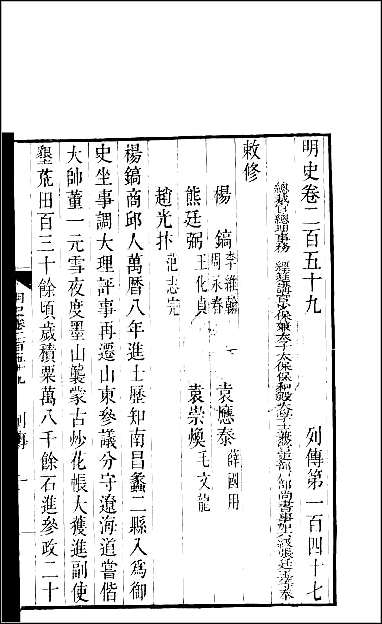 明史卷二百五十九 列傳第一百四十七
總裁官總理事務 經筵講官少保兼太子太保保和殿大學士兼管吏部戶部尚書事加六級張廷玉等奉
敕修
楊鎬 李維翰 周永春 袁應泰 薛國用
熊廷弼 王化貞 袁崇煥 毛文龍
趙光抃 范志完
楊鎬商邱人萬曆八年進士歷知南昌蠡二縣入為御
史坐事調大理評事再遷山東參議分守遼海道嘗偕
大帥董一元雪夜度墨山襲蒙古炒花帳大獲進副使
墾荒田百三十餘頃歲積粟萬八千餘石進參政二十